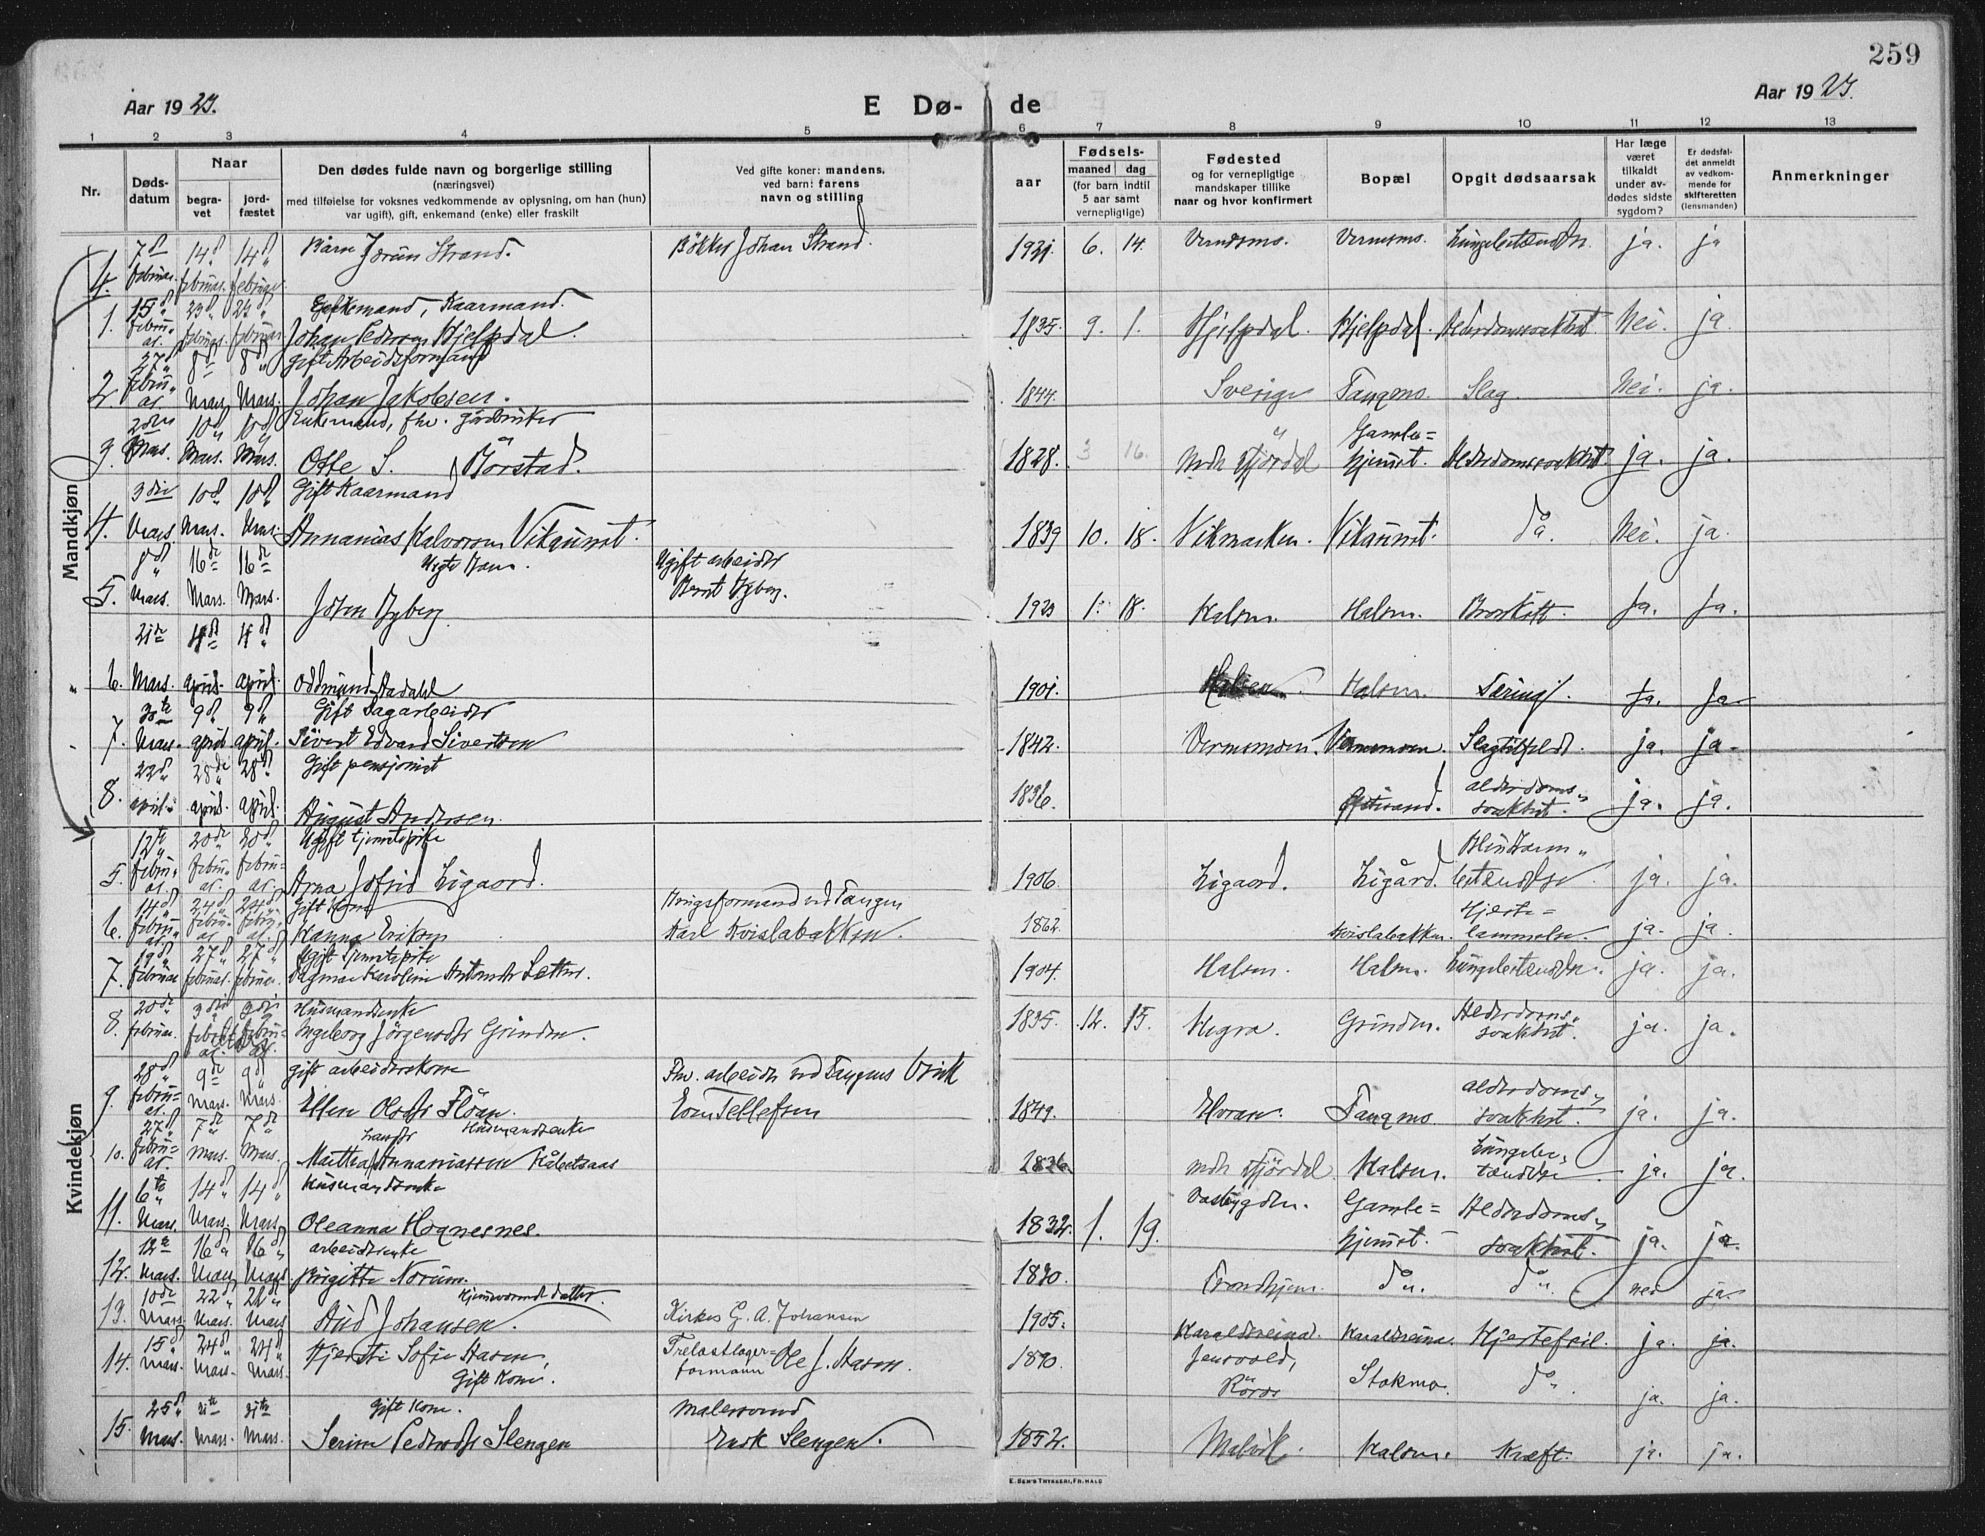 259
Aar 1923.
E Dø-
de
Aar 1923.
1 2 3 4 5 6 7 8 9 10 11 12 13
Nr.
Døds-
datum
Naar
begra-
vet
jord-
fæstet
Den dødes fulde navn og borgerlige stilling
(næringsvei)
med tilføielse for voksnes vedkommende av oplysning, om han (hun)
var ugift), gift, enkemand (enke) eller fraskilt
Ved gifte koner: mandens,
ved barn: farens
navn og stilling
Fødsels-
aar
maaned dag
(for barn indtil
5 aar samt
vernepligtige)
Fødested
og for vernepligtige
mandskaper tillike
naar og hvor konfirmert
Bopæl
Opgit dødsaarsak
Har læge
været
tilkaldt
under av-
dødes sidste
sygdom?
Er dødsfal-
det anmeldt
av vedkom-
mende for
skifteretten
(lensmanden)
Anmerkninger
Mandkjøn
4. 7d februar. 14d februar. 14d februar Barn Jorun Strand. Bökker Johan Strand. 1921. 6. 14. Lungebetændelse. ja. ja
1. 15d februar. 23d februar. 23d februar Enkemand, Kaarmand.
Johan Pedersen Hjelpdal. 1835. 9. 1. Hjelpdal. Hjelpdal. Alderdomssvakhet. Nei. ja.
2. 27d februar. 8d Mars 8d Mars. gift Arbeidsformand
Johan Jakobsen. 1844. Sverige Tangmo. Slag. Nei. ja.
3. 2den Mars. 10d Mars. 10d Mars. Enkemand, fhv. gårdbruker
Otte S. Börstad. 1828. 3 16. Gamle=
hjemmet. Alderdomssvakhet. ja. ja.
4. 3die Mars. 10d Mars. 10d Mars. Gift Kaarmand
Annanias Halvorsen Vikaunet. 1839 10. 18. Vikmarken. Vikaunet. do. Nei. ja.
5. 8d Mars. 16de Mars. 16de Mars. Uegte Barn.
Johan Byberg. Ugift arbeider
Bernt Byberg. 1923 1. 18. Halsen. Halsen. Ja. Ja.
6. 21de Mars. 4d april. 4d april. Oddmund Aadahl 1901. Halsen. Halsen. Tæring. Ja. Ja
7. 30te Mars. 9d april. 9d april. Gift Sagarbeider
Sivert Edvard Sivertsen 1842. Vernemoen. Slagtilfeld. ja. ja.
8. 22d april. 28de april. 28d april. Gift pensjonist
August Andersen. 1836. alderdoms=
svakhet. ja. ja.
Kvindekjøn
5. 12te februar. 20de februar. 20d februar. Ugift tjenestepike
Arna Jofrid Ligaard. 1906. Ligaard. Ligård. Blindtarm=
betændelse. ja. ja.
6. 14d februar. 24d februar. 24d februar. Gift Kone
Hanna Eriksen Karl Kvislabakken. 1862. Kvislabakken. Hjerte=
lammelse. ja. ja.
7. 19d februar 27d februar. 27d februar. Ugift Tjenestepike
Dagmar Karoline 1904. Halsen. Halsen. Lungebetændelse. ja. ja.
8. 20de februar. 3die 3die Husmandsenke
Ingeborg Jörgensdtr Grinden. 1835. 12. 15. Hegra. Grinden. Alderdoms=
svakhet. ja. ja.
9. 28d februar. 9de Mars. 9d Mars. gift arbeiderskone
Ellen Olsdtr Flöan. Fhv. arbeider ved Tangens bruk
Tellefsen 1849. Elvran. Tangmo. alderdoms=
svakhet. ja. ja.
10. 27d februar. 7de Mars. 7de Mars. Husmandsenke
Martha Annaniassen 1836. Halsen. Lungebe=
tændelse. ja. ja.
11. 6te Mars. 14d Mars. 14d Mars. Husmandsenke
Oleanna Hognesnes. 1832. 1. 19. Gamle=
hjemmet. Alderdoms=
svakhet. ja. ja.
12. 12te Mars. 16d Mars. 16d Mars. arbeiderenke
Birgitte Norum. 1830. Trondhjem. do. do. nei ja.
13. 10de Mars. 22d Mars. 22d Mars Hjemmeværende datter.
Aud Johansen. Kirkes G. A. Johansen 1905. Haraldreina. Haraldreina. Hjertefeil. ja. ja.
14. 15d Mars. 24d Mars. 24d Mars. Kjersti Sofie Aasen,
Gift Kone. Trelastlager=
formann Ole J. Aasen. 1890. Jensvold,
Röros Stokmo. do. ja. ja.
15. 25d Mars. 31te Mars. 31te Mars. Gift Kone.
Serine Pedersdtr Slengen Malersvend
Slengen. 1852. Malvik. Halsen. Kræft. ja. ja.
E. SEM'S TRYKKERI, FR. HALD